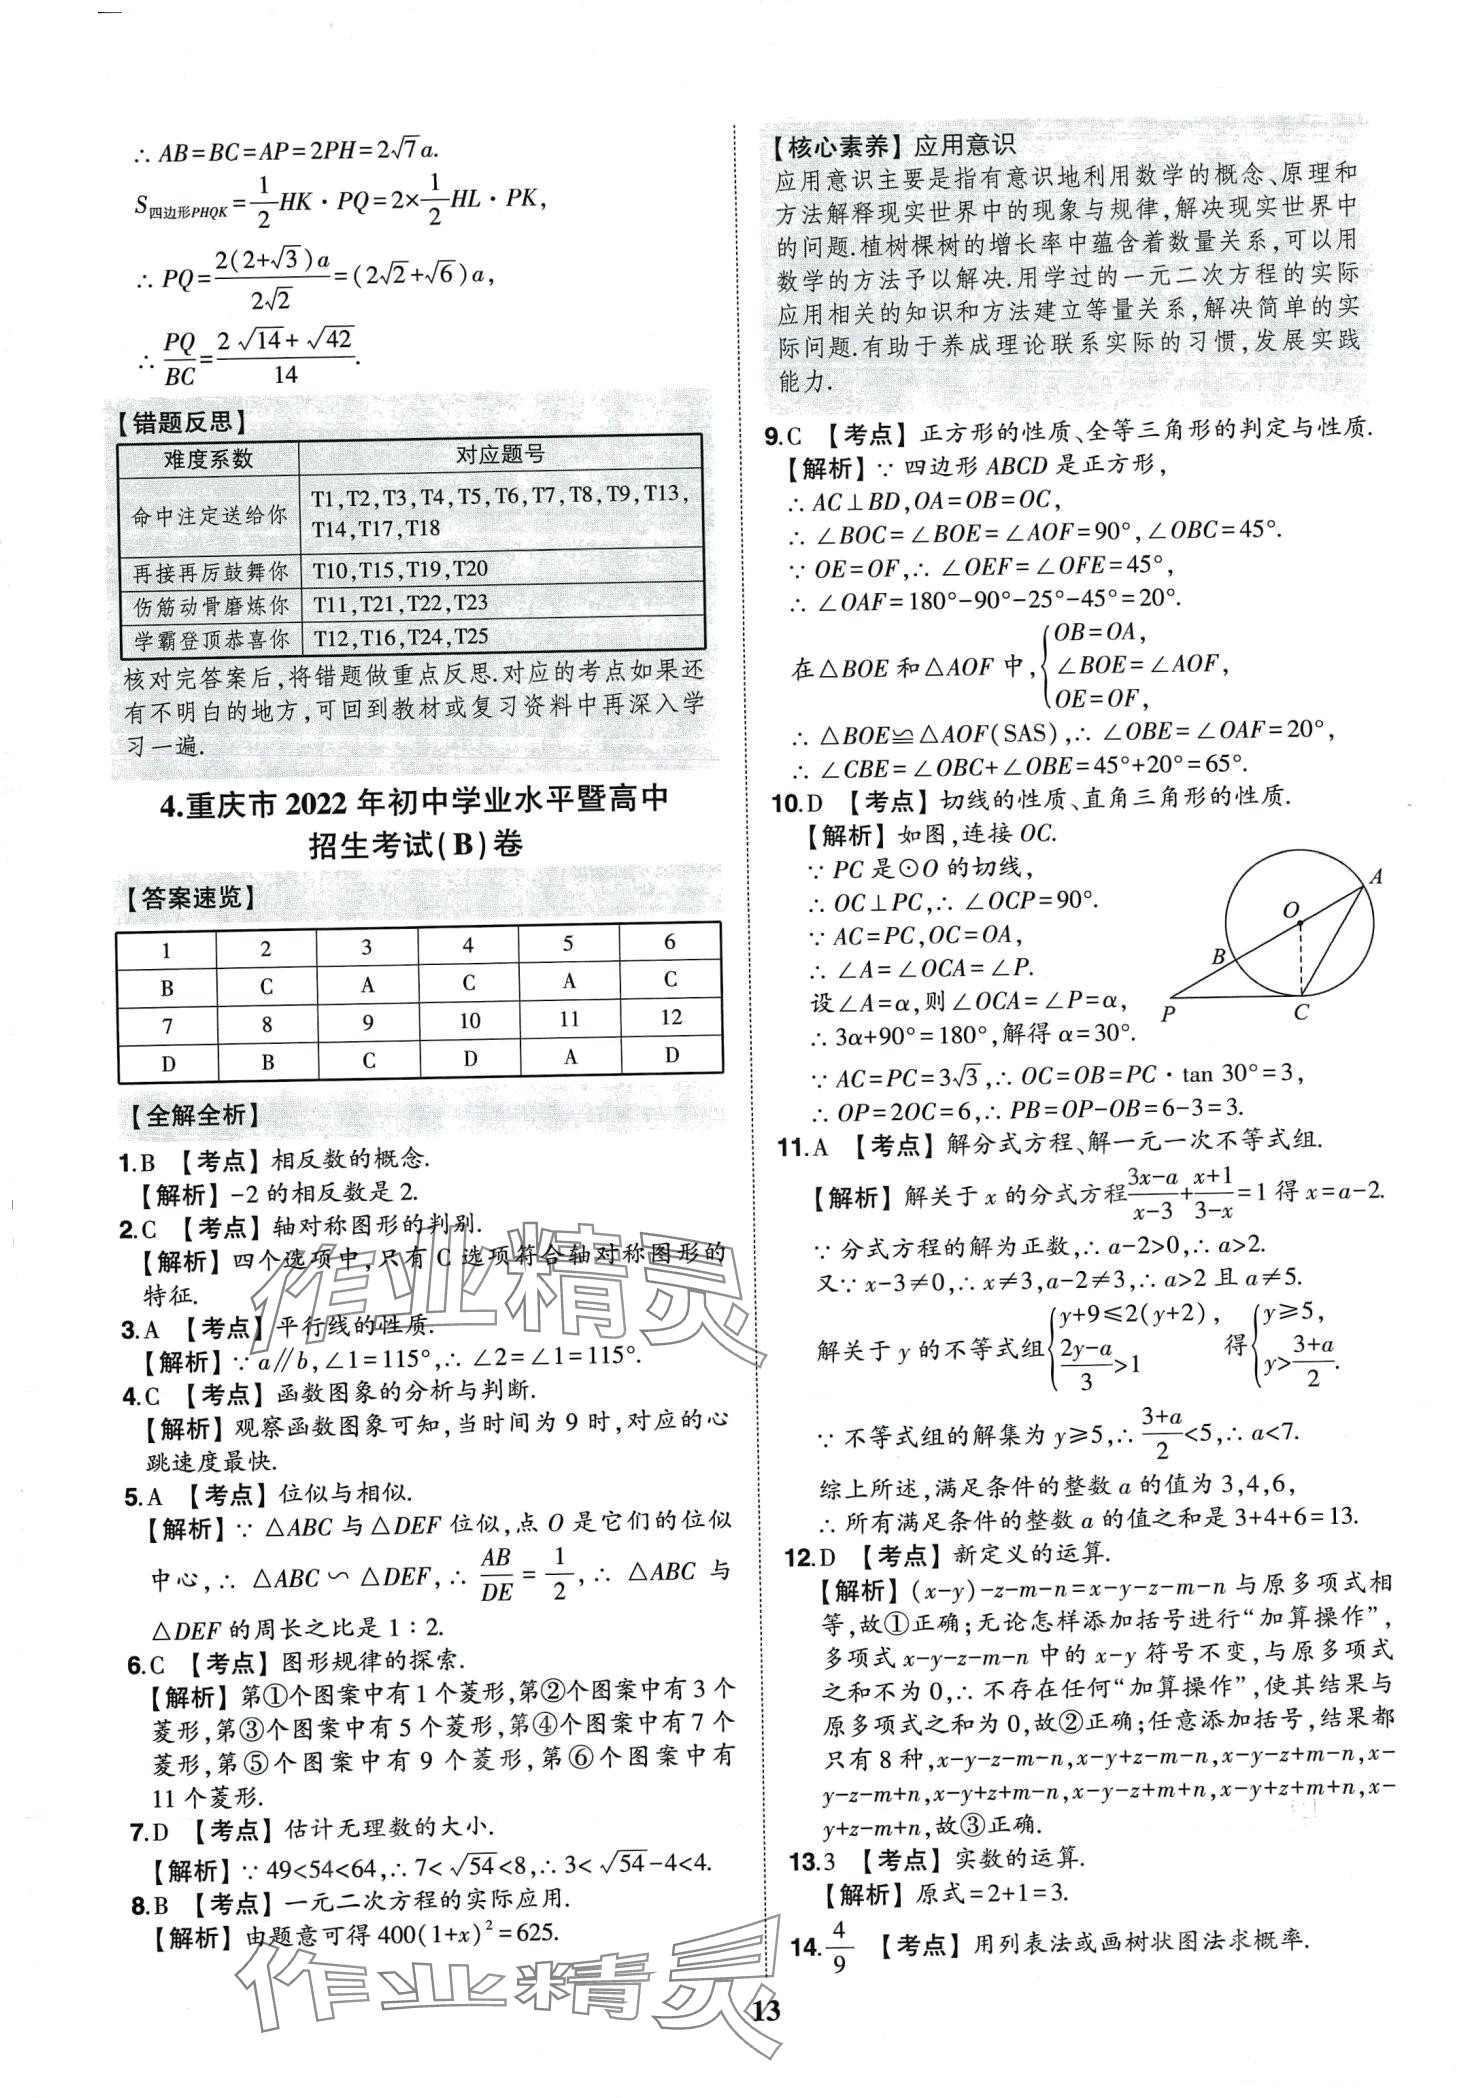 ∴ AB=BC=AP=2PH=2√7a.
S四边形PHQK=1/2HK·PQ=2×1/2HL·PK,
∴ PQ=2(2+√3)a/2√2=(2√2+√6)a,
∴ PQ/BC=(2√14+√42)/14.
【错题反思】
难度系数 对应题号
命中注定送给你 T1,T2,T3,T4,T5,T6,T7,T8,T9,T13,
T14,T17,T18
再接再厉鼓舞你 T10,T15,T19,T20
伤筋动骨磨炼你 T11,T21,T22,T23
学霸登顶恭喜你 T12,T16,T24,T25
核对完答案后,将错题做重点反思.对应的考点如果还
有不明白的地方,可回到教材或复习资料中再深入学
习一遍.
4.重庆市2022年初中学业水平暨高中
招生考试(B)卷
【答案速览】
1 2 3 4 5 6
B C A C A C
7 8 9 10 11 12
D B C D A D
【全解全析】
1.B 【考点】相反数的概念.
【解析】-2的相反数是2.
2.C 【考点】轴对称图形的判别.
【解析】四个选项中,只有C选项符合轴对称图形的
特征.
3.A 【考点】平行线的性质.
【解析】∵a∥b,∠1=115°,∴∠2=∠1=115°.
4.C 【考点】函数图象的分析与判断.
【解析】观察函数图象可知,当时间为9时,对应的心
跳速度最快.
5.A 【考点】位似与相似.
【解析】∵ △ABC与△DEF位似,点O是它们的位似
中心,∴ △ABC∽△DEF,∴ AB/DE=1/2,∴ △ABC与
△DEF的周长之比是1∶2.
6.C 【考点】图形规律的探索.
【解析】第①个图案中有1个菱形,第②个图案中有3个
菱形,第③个图案中有5个菱形,第④个图案中有7个
菱形,第⑤个图案中有9个菱形,第⑥个图案中有
11个菱形.
7.D 【考点】估计无理数的大小.
【解析】∵49<54<64,∴7<√54<8,∴3<√54-4<4.
8.B 【考点】一元二次方程的实际应用.
【解析】由题意可得400(1+x)²=625.
【核心素养】应用意识
应用意识主要是指有意识地利用数学的概念、原理和
方法解释现实世界中的现象与规律,解决现实世界中
的问题.植树棵树的增长率中蕴含着数量关系,可以用
数学的方法予以解决.用学过的一元二次方程的实际
应用相关的知识和方法建立等量关系,解决简单的实
际问题.有助于养成理论联系实际的习惯,发展实践
能力.
9.C 【考点】正方形的性质、全等三角形的判定与性质.
【解析】∵四边形ABCD是正方形,
∴ AC⊥BD,OA=OB=OC,
∴ ∠BOC=∠BOE=∠AOF=90°,∠OBC=45°.
∵ OE=OF,∴ ∠OEF=∠OFE=45°,
∴ ∠OAF=180°-90°-25°-45°=20°.
在△BOE和△AOF中,{OB=OA,
∠BOE=∠AOF,
OE=OF,
∴ △BOE≌△AOF(SAS),∴∠OBE=∠OAF=20°,
∴ ∠CBE=∠OBC+∠OBE=45°+20°=65°.
10.D 【考点】切线的性质、直角三角形的性质.
【解析】如图,连接OC.
∵ PC是⊙O的切线,
∴ OC⊥PC,∴ ∠OCP=90°.
∵ AC=PC,OC=OA,
∴ ∠A=∠OCA=∠P.
设∠A=α,则∠OCA=∠P=α,
∴ 3α+90°=180°,解得α=30°.
∵ AC=PC=3√3,∴ OC=OB=PC·tan 30°=3,
∴ OP=2OC=6,∴ PB=OP-OB=6-3=3.
A
O
B
P
C
11.A 【考点】解分式方程、解一元一次不等式组.
【解析】解关于x的分式方程(3x-a)/(x-3)+(x+1)/(3-x)=1得x=a-2.
∵ 分式方程的解为正数,∴a-2>0,∴a>2.
又∵x-3≠0,∴x≠3,a-2≠3,∴a>2且a≠5.
解关于y的不等式组{y+9≤2(y+2), (2y-a)/3>1 得{y≥5, y>(3+a)/2.
∵ 不等式组的解集为y≥5,∴(3+a)/2<5,∴a<7.
综上所述,满足条件的整数a的值为3,4,6,
∴ 所有满足条件的整数a的值之和是3+4+6=13.
12.D 【考点】新定义的运算.
【解析】(x-y)-z-m-n=x-y-z-m-n与原多项式相
等,故①正确;无论怎样添加括号进行“加算操作”,
多项式x-y-z-m-n中的x-y符号不变,与原多项式
之和不为0,∴不存在任何“加算操作”,使其结果与
原多项式之和为0,故②正确;任意添加括号,结果都
只有8种,x-y-z-m-n,x-y+z-m-n,x-y-z+m-n,x-
y-z-m+n,x-y+z+m-n,x-y-z+m+n,x-y+z+m+n,x-
y+z-m+n,故③正确.
13.3 【考点】实数的运算.
【解析】原式=2+1=3.
14.4/9 【考点】用列表法或画树状图法求概率.
13
作业精灵
作业精灵